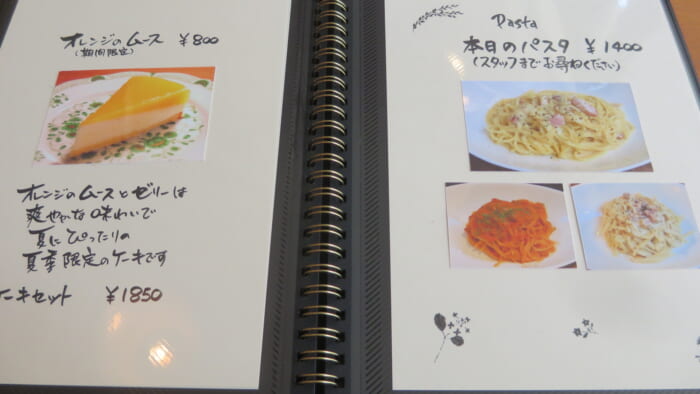 オレンジのムース ¥800
(期間限定)
オレンジのムースとゼリーは
爽やかな味わいで
夏にぴったりの
夏季限定のケーキです
ーキセット ¥1850
Pasta
本日のパスタ ¥1400
(スタッフまでお尋ねください)